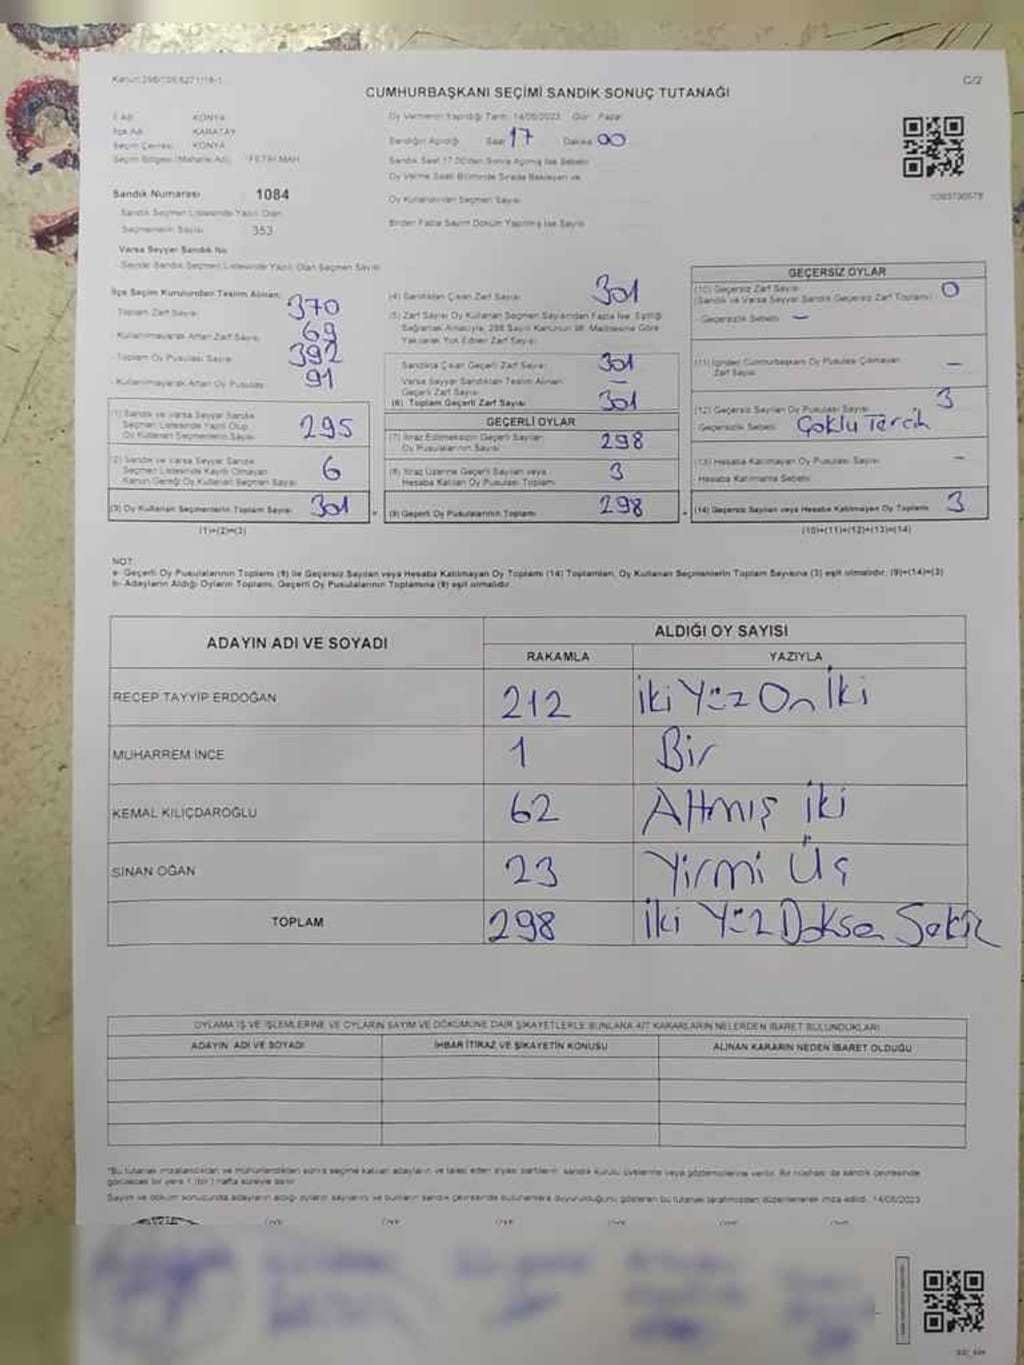 Kanun:298/105.6271/18-1
C/2
CUMHURBAŞKANI SEÇİMİ SANDIK SONUÇ TUTANAĞI
İl Adı KONYA
İlçe Adı KARATAY
Seçim Çevresi KONYA
Seçim Bölgesi (Mahalle Adı) FETİH MAH
Sandık Numarası 1084
Sandık Seçmen Listesinde Yazılı Olan
Seçmenlerin Sayısı 353
Varsa Seyyar Sandık No
Seyyar Sandık Seçmen Listesinde Yazılı Olan Seçmen Sayısı
Oy Vermenin Yapıldığı Tarih: 14/05/2023 Gün: Pazar
Sandığın Açıldığı Saat 17 Dakika 00
Sandık Saat 17.00'den Sonra Açılmış İse Sebebi
Oy Verme Saati Bitiminde Sırada Bekleyen ve
Oy Kullandırılan Seçmen Sayısı
Birden Fazla Sayım Döküm Yapılmış İse Sayısı
İlçe Seçim Kurulundan Teslim Alınan;
Toplam Zarf Sayısı 370
- Kullanılmayarak Artan Zarf Sayısı 69
Toplam Oy Pusulası Sayısı 392
- Kullanılmayarak Artan Oy Pusulası 91
(1) Sandık ve Varsa Seyyar Sandık
Seçmen Listesinde Yazılı Olup
Oy Kullanan Seçmenlerin Sayısı 295
(2) Sandık ve Varsa Seyyar Sandık
Seçmen Listesinde Kayıtlı Olmayan
Kanun Gereği Oy Kullanan Seçmen Sayısı 6
(3) Oy Kullanan Seçmenlerin Toplam Sayısı 301
(1)+(2)=(3)
(4) Sandıktan Çıkan Zarf Sayısı 301
(5) Zarf Sayısı Oy Kullanan Seçmen Sayısından Fazla İse, Eşitliği
Sağlamak Amacıyla, 298 Sayılı Kanunun 98. Maddesine Göre
Yakılarak Yok Edilen Zarf Sayısı
Sandıkta Çıkan Geçerli Zarf Sayısı 301
Varsa Seyyar Sandıktan Teslim Alınan
Geçerli Zarf Sayısı –
(6) Toplam Geçerli Zarf Sayısı 301
GEÇERLİ OYLAR
(7) İtiraz Edilmeksizin Geçerli Sayılan
Oy Pusulalarının Sayısı 298
(8) İtiraz Üzerine Geçerli Sayılan veya
Hesaba Katılan Oy Pusulası Toplamı 3
(9) Geçerli Oy Pusulalarının Toplamı 298
GEÇERSİZ OYLAR
(10) Geçersiz Zarf Sayısı
(Sandık ve Varsa Seyyar Sandık Geçersiz Zarf Toplamı) 0
- Geçersizlik Sebebi –
(11) İçinden Cumhurbaşkanı Oy Pusulası Çıkmayan
Zarf Sayısı –
(12) Geçersiz Sayılan Oy Pusulası Sayısı 3
Geçersizlik Sebebi Çoklu Tercih
(13) Hesaba Katılmayan Oy Pusulası Sayısı –
Hesaba Katılmama Sebebi
(14) Geçersiz Sayılan veya Hesaba Katılmayan Oy Toplamı 3
(10)+(11)+(12)+(13)=(14)
NOT:
a- Geçerli Oy Pusulalarının Toplamı (9) ile Geçersiz Sayılan veya Hesaba Katılmayan Oy Toplamı (14) Toplamları, Oy Kullanan Seçmenlerin Toplam Sayısına (3) eşit olmalıdır. (9)+(14)=(3)
b- Adayların Aldığı Oyların Toplamı, Geçerli Oy Pusulalarının Toplamına (9) eşit olmalıdır.
ADAYIN ADI VE SOYADI
ALDIĞI OY SAYISI
RAKAMLA YAZIYLA
RECEP TAYYİP ERDOĞAN 212 İki Yüz On İki
MUHARREM İNCE 1 Bir
KEMAL KILIÇDAROĞLU 62 Altmış iki
SİNAN OĞAN 23 Yirmi Üç
TOPLAM 298 İki Yüz Doksan Sekiz
OYLAMA İŞ VE İŞLEMLERİNE VE OYLARIN SAYIM VE DÖKÜMÜNE DAİR ŞİKAYETLERLE BUNLARA AİT KARARLARIN NELERDEN İBARET BULUNDUKLARI
ADAYIN ADI VE SOYADI İHBAR İTİRAZ VE ŞİKAYETİN KONUSU ALINAN KARARIN NEDEN İBARET OLDUĞU
*Bu tutanak imzalandıktan ve mühürlendikten sonra seçime katılan adayların ve talep eden siyasi partilerin, sandık kurulu üyelerine veya gözlemcilerine verilir. Bir nüshası da sandık çevresinde
görülecek bir yere 1 (bir) hafta süreyle asılır.
Sayım ve döküm sonucunda adayların aldığı oyların sayılarını ve bunların sandık çevresinde bulunanlara duyurulduğunu gösteren bu tutanak tarafımızdan düzenlenerek imza edildi. 14/05/2023